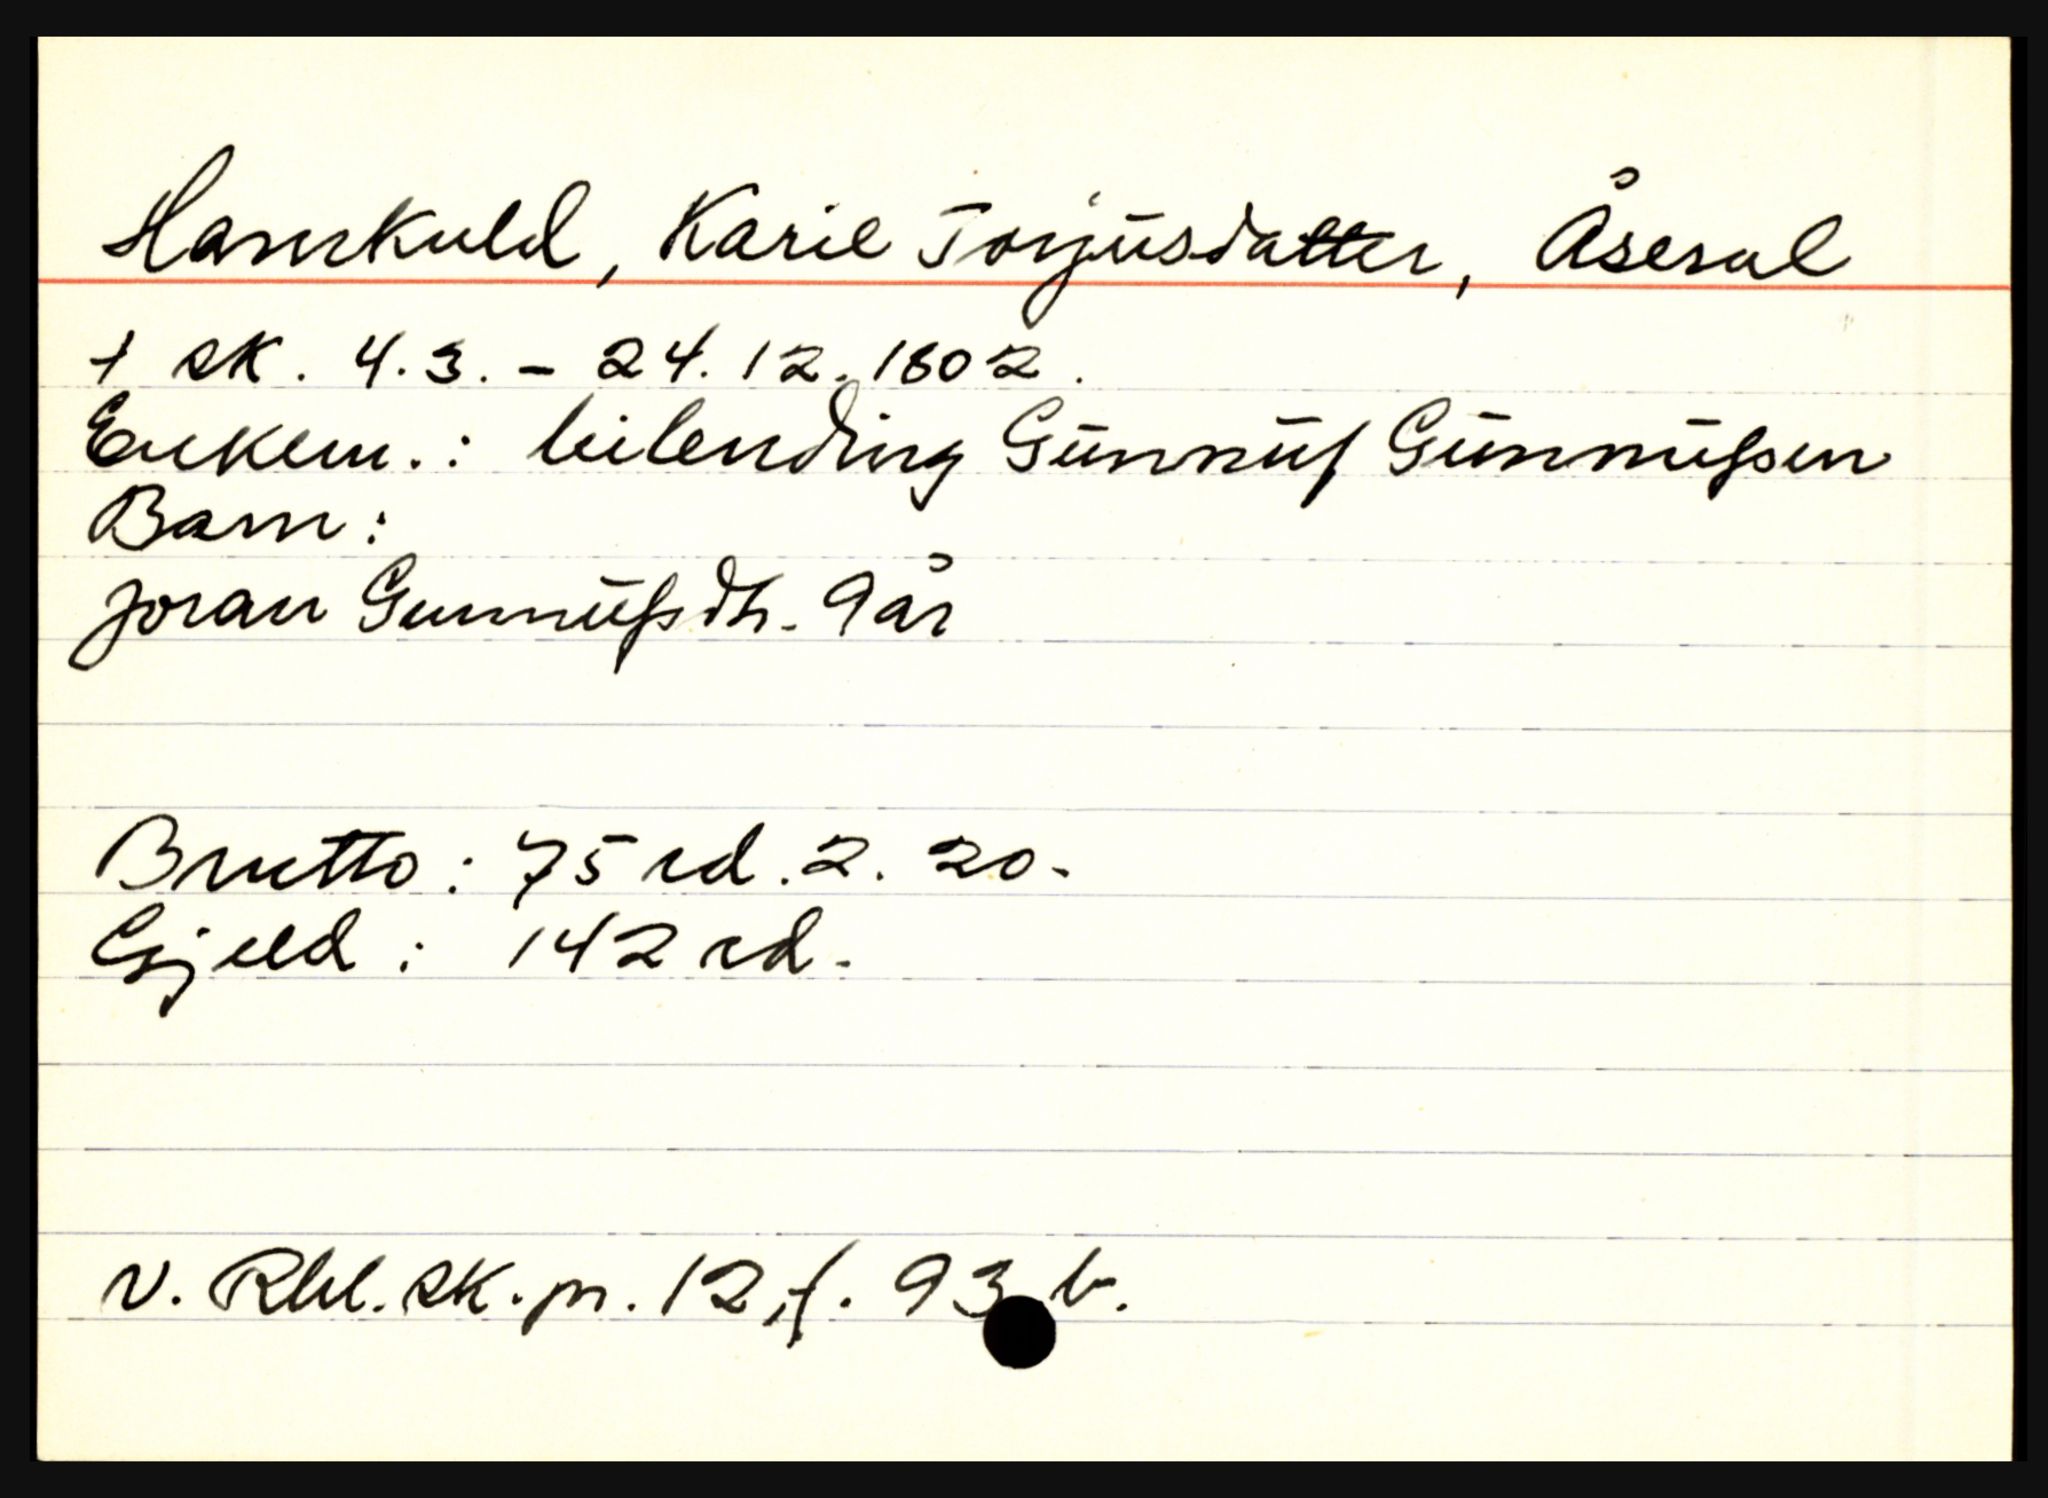 Hamkuld, Karie Torjusdatter, Åseral
† sk. 4.3. - 24.12.1802.
Enkem.: leilending Gunnuf Gunnufsen
Barn:
Joran Gunnufsdtr. 9 år
Brutto: 75 rd. 2. 20.
Gjeld: 142 rd.
V. Rbl. sk. pr. 12, f. 93 b.